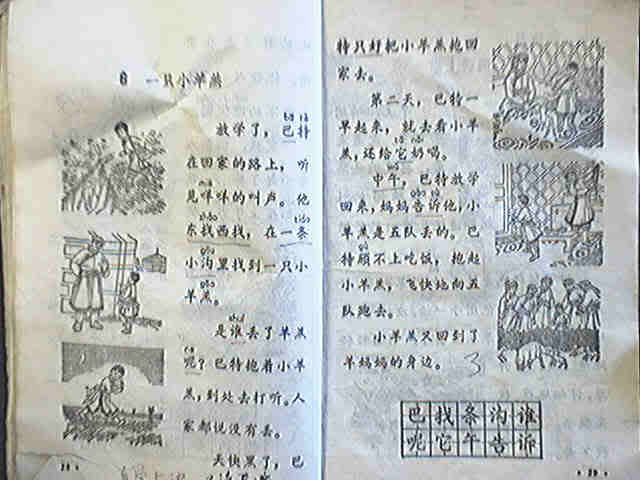 6 一只小羊羔
放学了，巴特
在回家的路上，听
见咩咩的叫声。他
东找西找，在一条
小沟里找到一只小
羊羔。
是谁丢了羊羔
呢？巴特抱着小羊
羔，到处去打听。人
家都说没有丢。
天快黑了，巴
特只好把小羊羔抱回
家去。
第二天，巴特一
早起来，就去看小羊
羔，还给它奶喝。
中午，巴特放学
回来，妈妈告诉他，小
羊羔是五队丢的。巴
特顾不上吃饭，抱起
小羊羔，飞快地向五
队跑去。
小羊羔又回到了
羊妈妈的身边。
3
巴找条沟谁
呢它午告诉